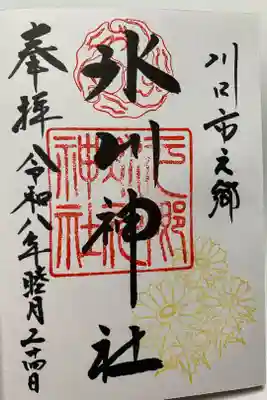 川口市元郷
氷川神社
元郷
氷川
神社
奉拝 令和八年睦月二十四日